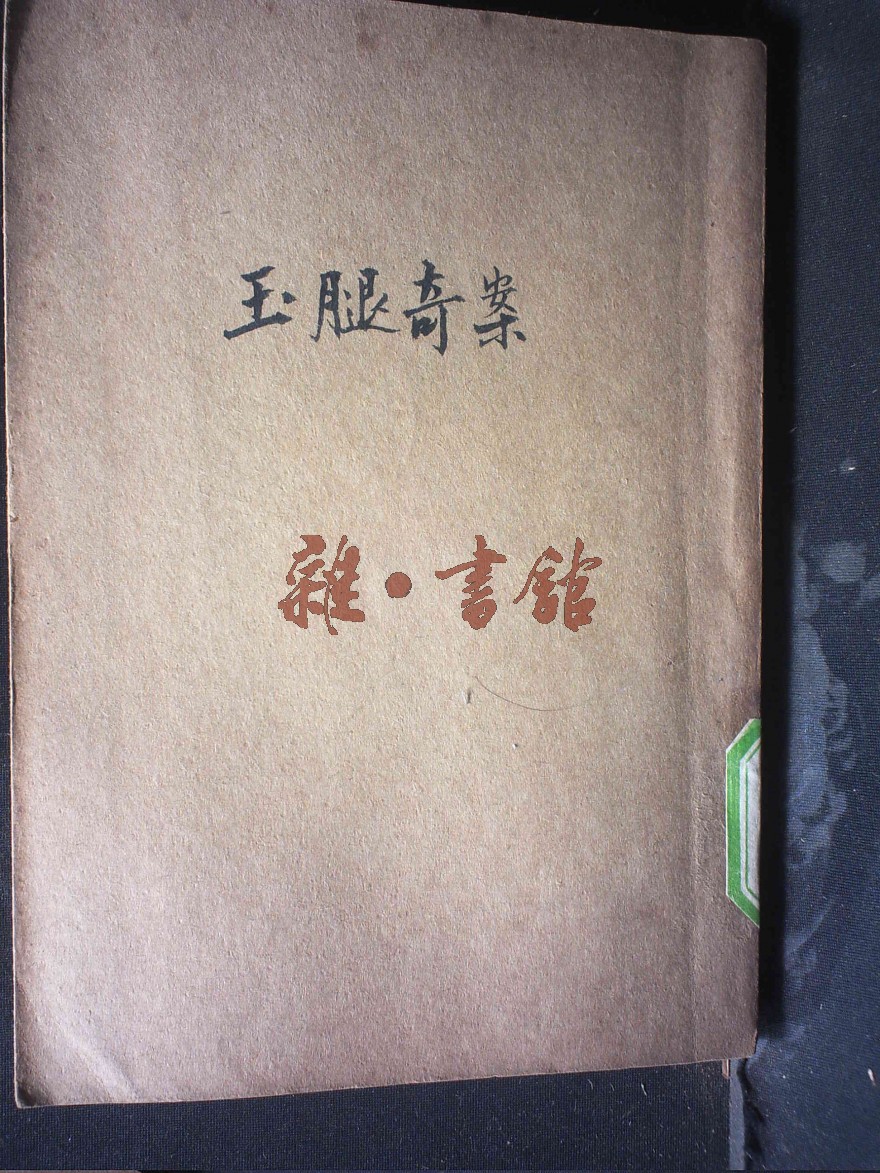 玉腿奇案
雜·書館